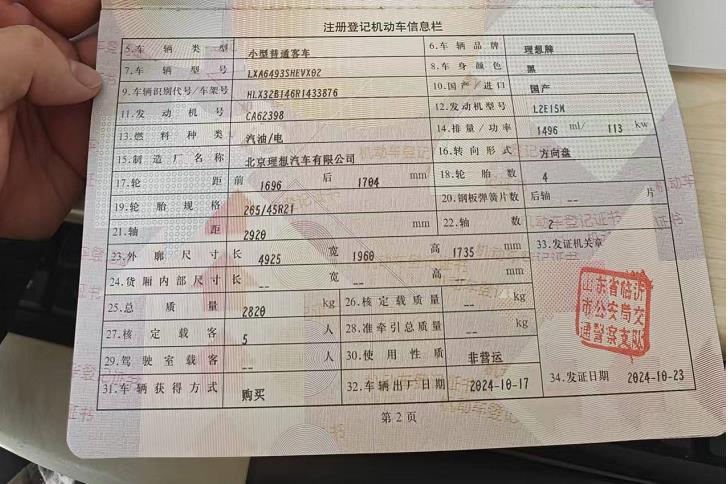 注册登记机动车信息栏
5.车辆类型 小型普通客车 6.车辆品牌 理想牌
7.车辆型号 LXA6493SHEVX02 8.车身颜色 黑
9.车辆识别代号/车架号 HLX32B146R1433876 10.国产/进口 国产
11.发动机号 CA62398 12.发动机型号 L2E15M
13.燃料种类 汽油/电 14.排量/功率 1496 ml/ 113 kw
15.制造厂名称 北京理想汽车有限公司 16.转向形式 方向盘
17.轮距 前 1696 后 1704 mm 18.轮胎数 4
19.轮胎规格 265/45R21 20.钢板弹簧片数 后轴 片
21.轴距 2920 mm 22.轴数 2
23.外廓尺寸 长 4925 宽 1960 高 1735 mm 33.发证机关章
24.货厢内部尺寸 长 -- 宽 -- 高 -- mm
25.总质量 2820 kg 26.核定载质量 -- kg
27.核定载客 5 人 28.准牵引总质量 -- kg
29.驾驶室载客 -- 人 30.使用性质 非营运
31.车辆获得方式 购买 32.车辆出厂日期 2024-10-17 34.发证日期 2024-10-23
山东省临沂
市公安局交
通警察支队
第2页